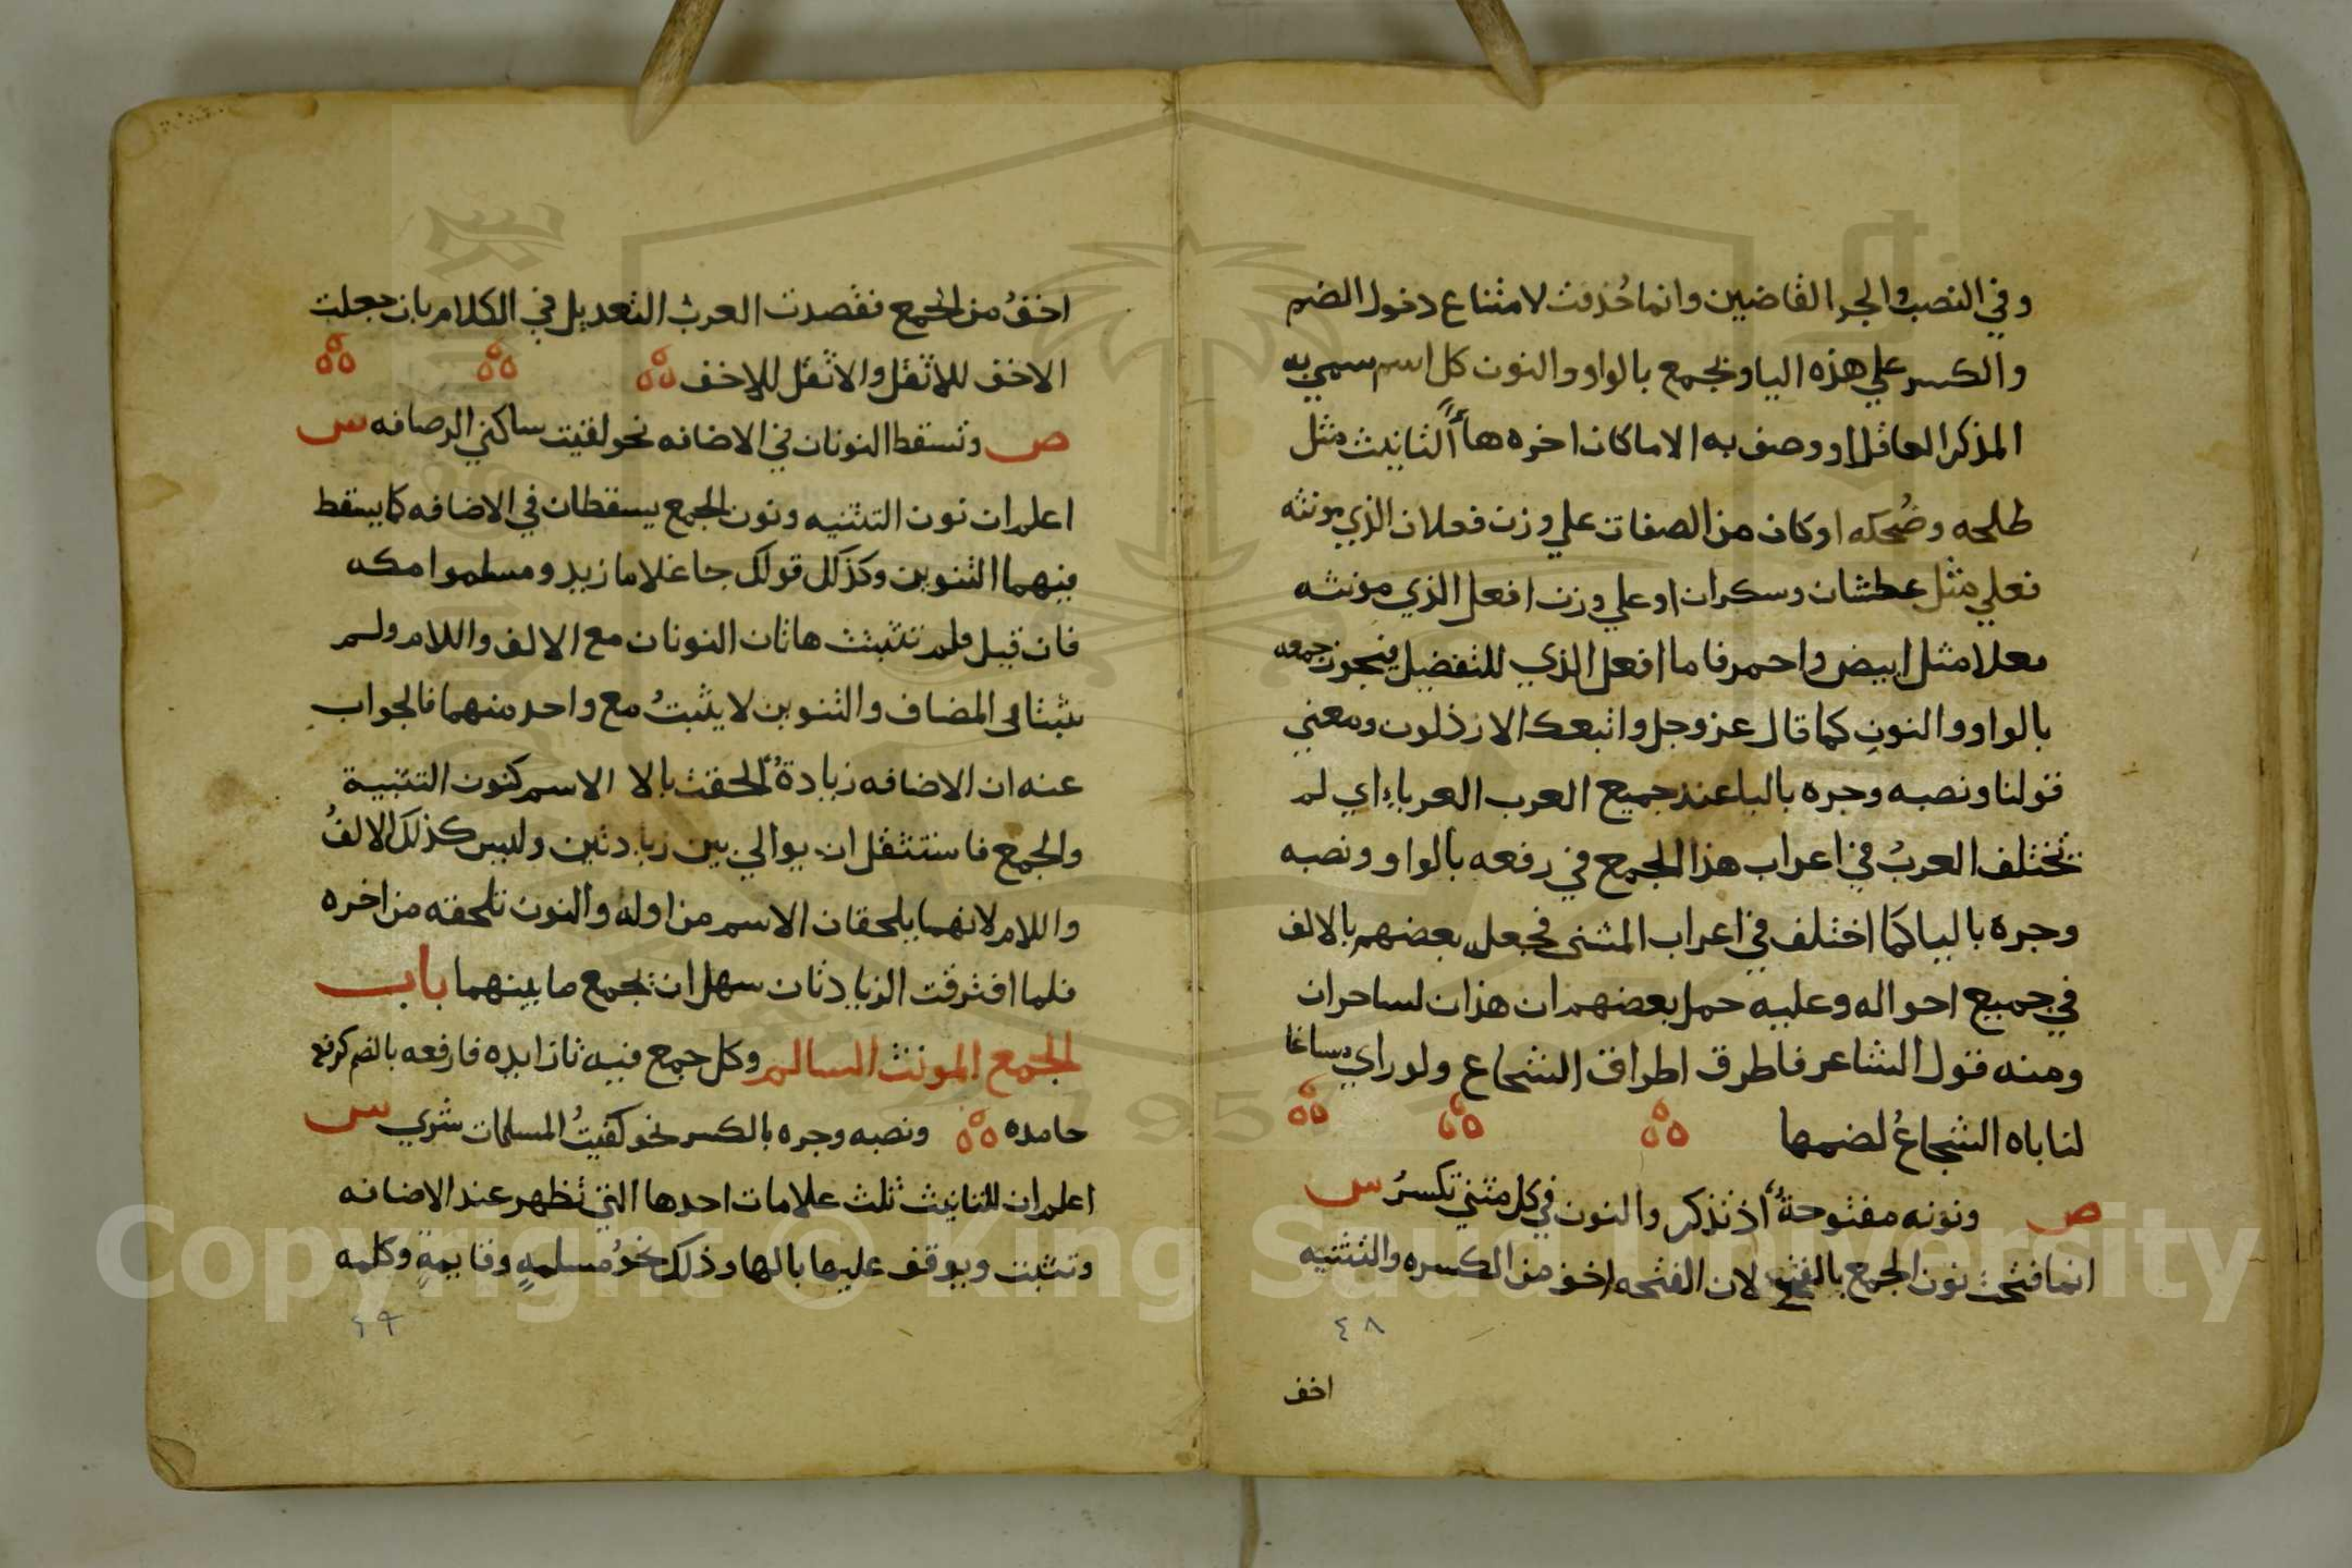 وفي النصب والجر القاضيين وانما حُذفت لامتناع دخول الضم
والكسر علي هذه اليا وتجمع بالواو والنون كل اسم سمي به
المذكر العاقل او وصف به الا ما كان اخره هاً التانيث مثل
طلحه وضُحكه او كان من الصفات علي وزن فعلان الذي مونثه
فعلي مثل عطشان وسكران او علي وزن افعل الذي مونثه
فعلا مثل ابيض واحمر فاما افعل الذي للتفضيل فيجوز جمعه
بالواو والنون كما قال عز وجل واتبعك الارذلون ومعني
قولنا ونصبه وجره باليا عند جميع العرب العرباء اي لم
تختلف العربُ في اعراب هذا الجمع في رفعه بالواو ونصبه
وجره باليا كما اختلف في اعراب المثنى فجعل بعضهم بالالف
في جميع احواله وعليه حمل بعضهم ان هذان لساحران
ومنه قول الشاعر فاطرق اطراق الشجاع ولو راي مساغا
لناباه الشجاعُ لضمها
ص ونونه مفتوحةٌ اذ تذكر والنون في كل مثني تكسرُ س
انما فتحت نون الجمع بالفتح لان الفتحه اخف من الكسره والتثنيه
٤٨
اخف
اخفُ من الجمع فقصدت العرب التعديل في الكلام بان جعلت
الاخف للاثقل والاثقل للاخف
ص وتسقط النونان في الاضافه نحو لقيت ساكني الرصافه س
اعلم ان نون التثنيه ونون الجمع يسقطان في الاضافه كما يسقط
فيهما التنوين وكذلك قولك جا غلاما زيد ومسلموا مكه
فان قيل فلم تثبت هاتان النونان مع الالف واللام ولم
تثبتا في المضاف والتنوين لا يثبتُ مع واحد منهما فالجواب
عنه ان الاضافه زيادةٌ الحقت بالا الاسم كنون التثنية
والجمع فاستثقل ان يوالي بين زيادتين وليس كذلك الالفُ
واللام لانهما يلحقان الاسم من اوله والنون تلحقه من اخره
فلما افترقت الزيادتان سهل ان تجمع ما بينهما باب
الجمع المونث السالم وكل جمع فيه تا زايده فارفعه بالضم كرفع
حامده ونصبه وجره بالكسر نحو كفيتُ المسلمات شري س
اعلم ان للتانيث ثلث علامات احدها التي تظهر عند الاضافه
وتثبت ويوقف عليها بالها وذلك نحوُ مسلمةٍ وقايمةٍ وكلمه
٤٩
Copyright © King Saud University
1957